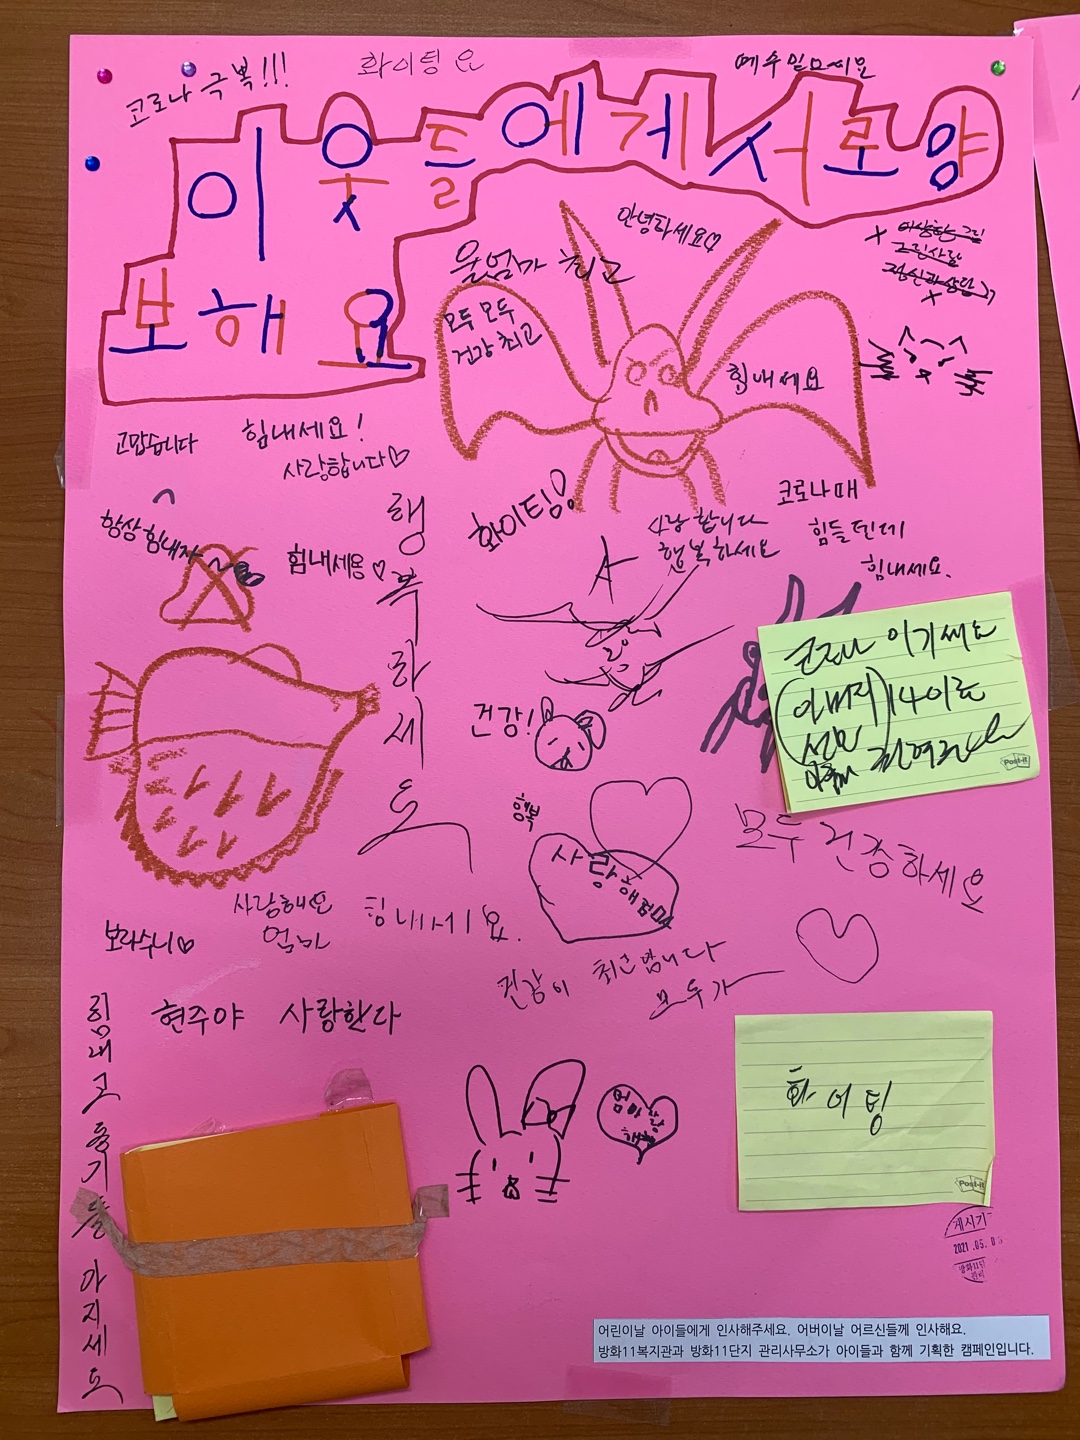 코로나 극복!!!
화이팅 요
예수믿으세요
이웃들에게 서로 양
보해요
안녕하세요♡
울엄마 최고
모두 모두
건강 최고
힘내세요
고맙습니다
힘내세요!
사랑합니다♡
항상 힘내자~
힘내세용♡
행복하세요
화이팅!
A
사랑합니다
행복하세요
코로나 때
힘들텐데
힘내세요.
건강!
이기세요
행복
사랑해
모두 건강하세요
사랑해요
엄마
힘내세요.
보라수니♡
건강이 최고입니다
모두가
현주야 사랑한다
힘내고 용기들 가지세요
엄마
화이팅
Post-it
Post-it
2021.05.0
어린이날 아이들에게 인사해주세요. 어버이날 어르신들께 인사해요.
방화11복지관과 방화11단지 관리사무소가 아이들과 함께 기획한 캠페인입니다.